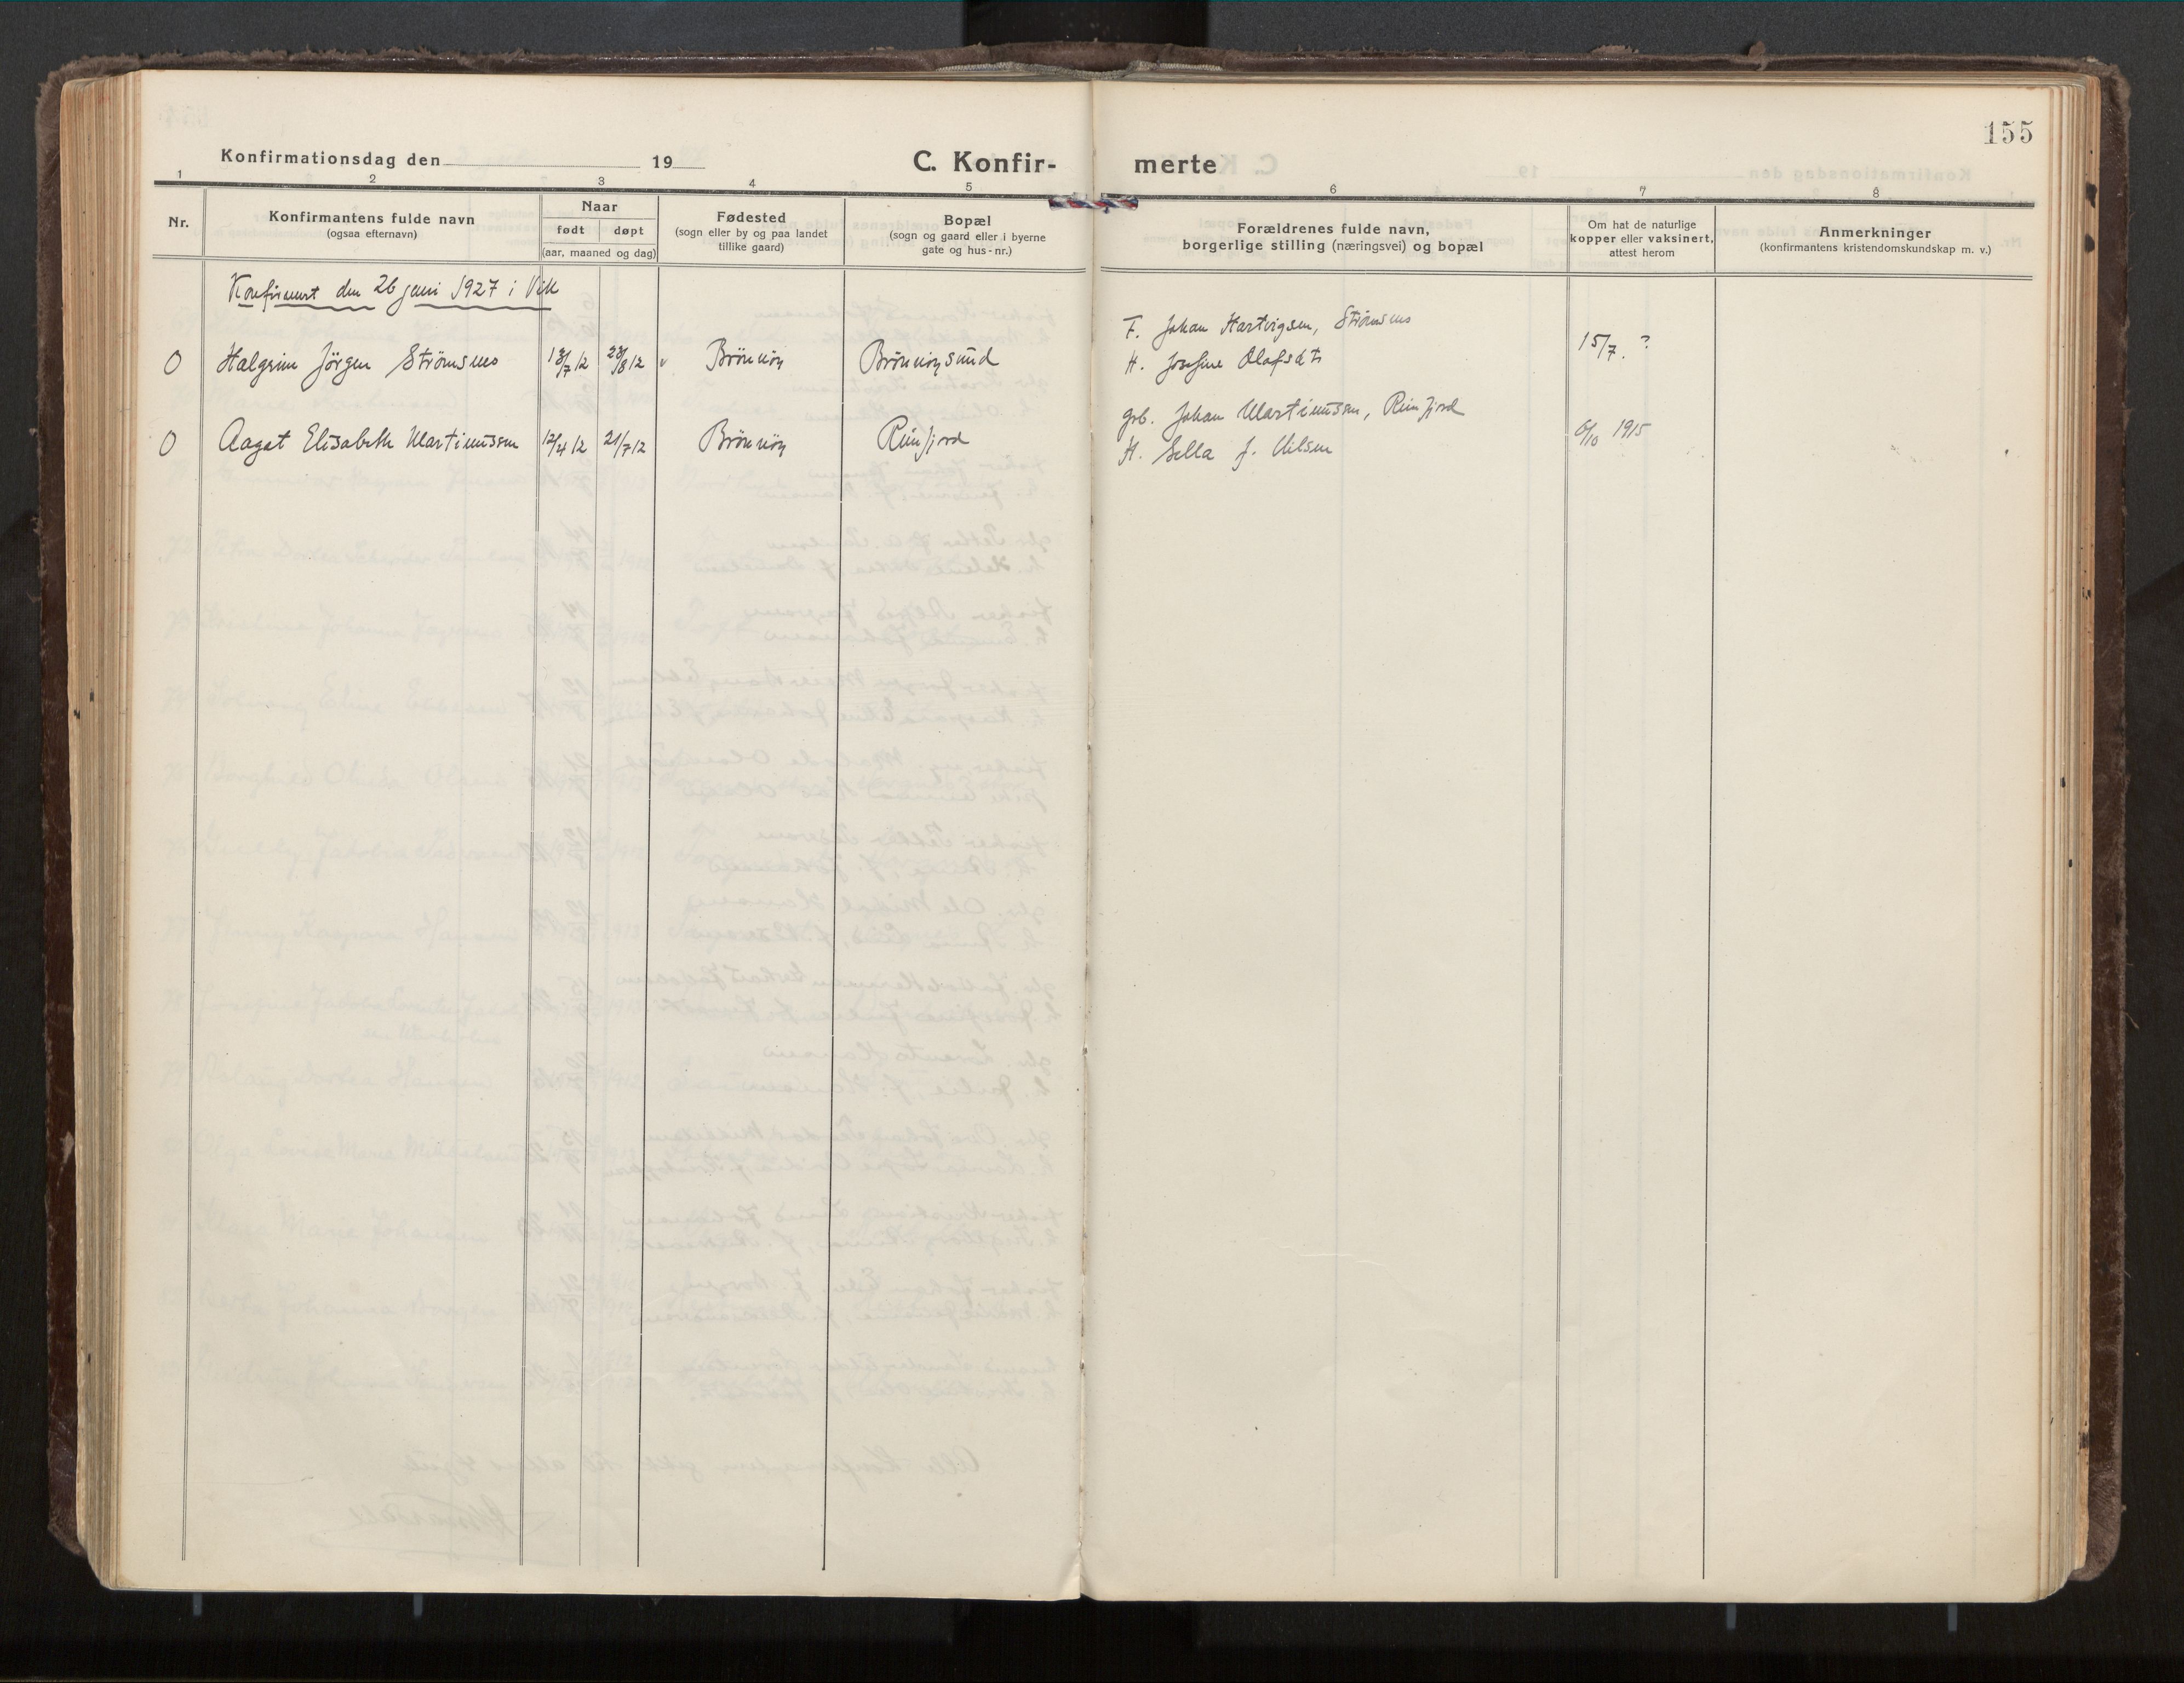 155
Konfirmationsdag den 19
C. Konfir-
merte
1 2 3 4 5 6 7 8
Nr.
Konfirmantens fulde navn
(ogsaa efternavn)
Naar
født døpt
(aar, maaned og dag)
Fødested
(sogn eller by og paa landet
tillike gaard)
Bopæl
(sogn og gaard eller i byerne
gate og hus-nr.)
Forældrenes fulde navn,
borgerlige stilling (næringsvei) og bopæl
Om hat de naturlige
kopper eller vaksinert,
attest herom
Anmerkninger
(konfirmantens kristendomskundskap m. v.)
Konfirmert den 26 juni 1927 i Vik
F. Johan Hartvigsen, Strømsnes
0 Halgrim Jörgen Strømsnes 13/7 12 23/8 12 Brönnöy Brönnöysund 15/7. ?
H. Josefine Olafsdtr
grb. Johan Martinussen, Reinfjord
0 Aagot Elisabeth Martinussen 12/4 12 21/7 12 Brönnöy Reinfjord 6/10 1915
H. Sella f. Nilsen